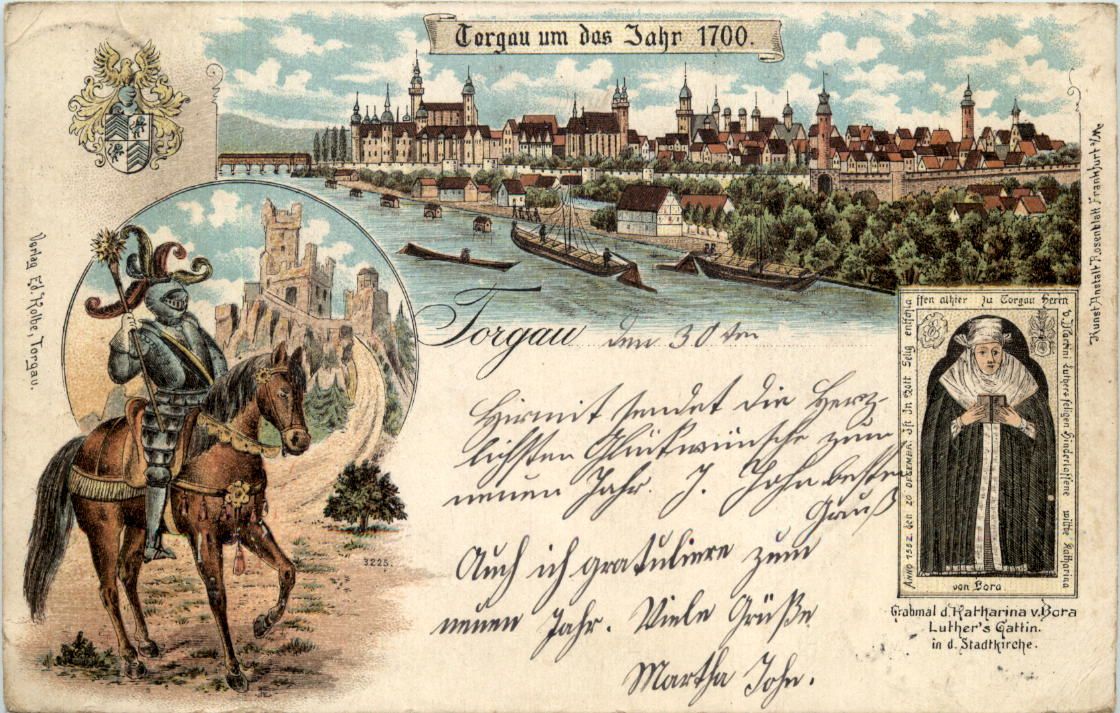 Torgau um das Jahr 1700.
Verlag Ed. Kolbe, Torgau.
Kunst Anstalt Rosenblatt Frankfurt a/M.
3225.
Torgau den 30ten
Hirmit sendet die Herz-
lichsten Glückwünsche zum
neuen Jahr. J. John besten
Gruß
Auch ich gratuliere zum
neuen Jahr. Viele Grüße
Martha John.
ANNO 1552. den 20 DEZEMBR Ist in Gott Selig entschla
ffen alhier zu Torgau Herrn
D. Martini Luthers seligen Hinderlassene witbe Katharina
von Bora
Grabmal d. Katharina v. Bora
Luther's Gattin.
in d. Stadtkirche.